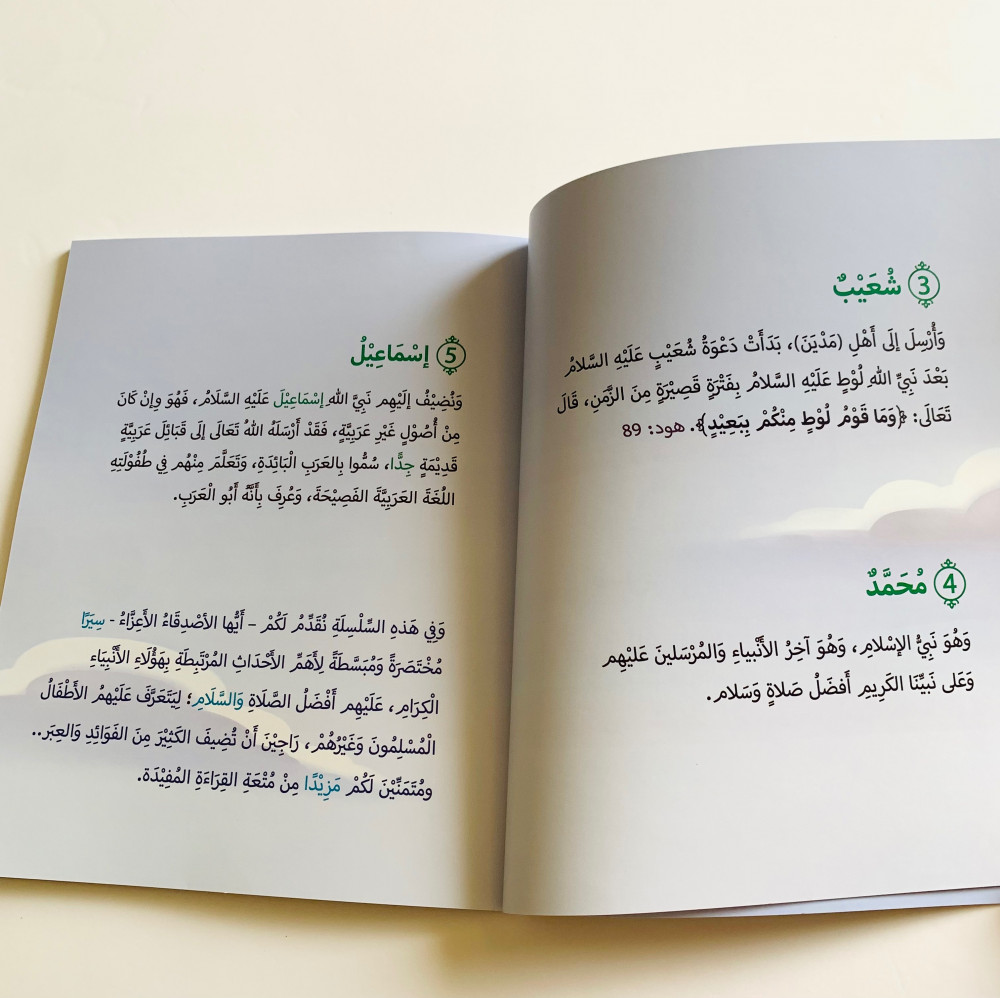 3 شُعَيْبٌ
وَأُرْسِلَ إلَى أَهْلِ (مَدْيَنَ)، بَدَأَتْ دَعْوَةُ شُعَيْبٍ عَلَيْهِ السَّلامُ
بَعْدَ نَبِيِّ اللهِ لُوْطٍ عَلَيْهِ السَّلامُ بِفَتْرَةٍ قَصِيْرَةٍ مِنَ الزَّمَنِ، قَالَ
تَعَالَى: ﴿وَمَا قَوْمُ لُوْطٍ مِنْكُمْ بِبَعِيْدٍ﴾. هود: 89
4 مُحَمَّدٌ
وَهُوَ نَبِيُّ الإسْلامِ، وَهُوَ آخِرُ الأَنْبياءِ وَالمُرْسَلينَ عَلَيْهِم
وَعَلى نَبيِّنَا الكَرِيمِ أَفضَلُ صَلاةٍ وَسَلام.
5 إسْمَاعِيْلُ
وَنُضِيْفُ إلَيْهِم نَبِيَّ اللهِ إسْمَاعِيْلَ عَلَيْهِ السَّلَامُ، فَهُوَ وَإنْ كَانَ
مِنْ أُصُولٍ غَيْرِ عَرَبِيَّةٍ، فَقَدْ أَرْسَلَهُ اللهُ تَعَالَى إلَى قَبَائِلَ عَرَبِيَّةٍ
قَدِيْمَةٍ جِدًّا، سُمُّوا بِالعَرَبِ البَائِدَةِ، وَتَعَلَّمَ مِنْهُم فِي طُفُوْلَتِهِ
اللُّغَةَ العَرَبِيَّةَ الفَصِيْحَةَ، وَعُرِفَ بِأَنَّهُ أَبُو الْعَرَبِ.
وَفِي هَذِهِ السِّلْسِلَةِ نُقَدِّمُ لَكُمْ – أَيُّها الأصْدِقَاءُ الأَعِزَّاءُ - سِيَرًا
مُخْتَصَرَةً وَمُبَسَّطَةً لِأَهَمِّ الأَحْدَاثِ المُرْتَبِطَةِ بِهَؤُلَاءِ الأَنْبِيَاءِ
الْكِرَامِ، عَلَيْهِم أَفْضَلُ الصَّلَاةِ وَالسَّلَامِ؛ لِيَتَعَرَّفَ عَلَيْهِمُ الأَطْفَالُ
الْمُسْلِمُونَ وَغَيْرُهُمْ، رَاجِيْنَ أَنْ تُضِيفَ الكَثِيْرَ مِنَ الفَوَائِدِ وَالعِبَر..
ومُتَمَنِّيْنَ لَكُمْ مَزِيْدًا مِنْ مُتْعَةِ القِرَاءَةِ المُفِيْدَة.